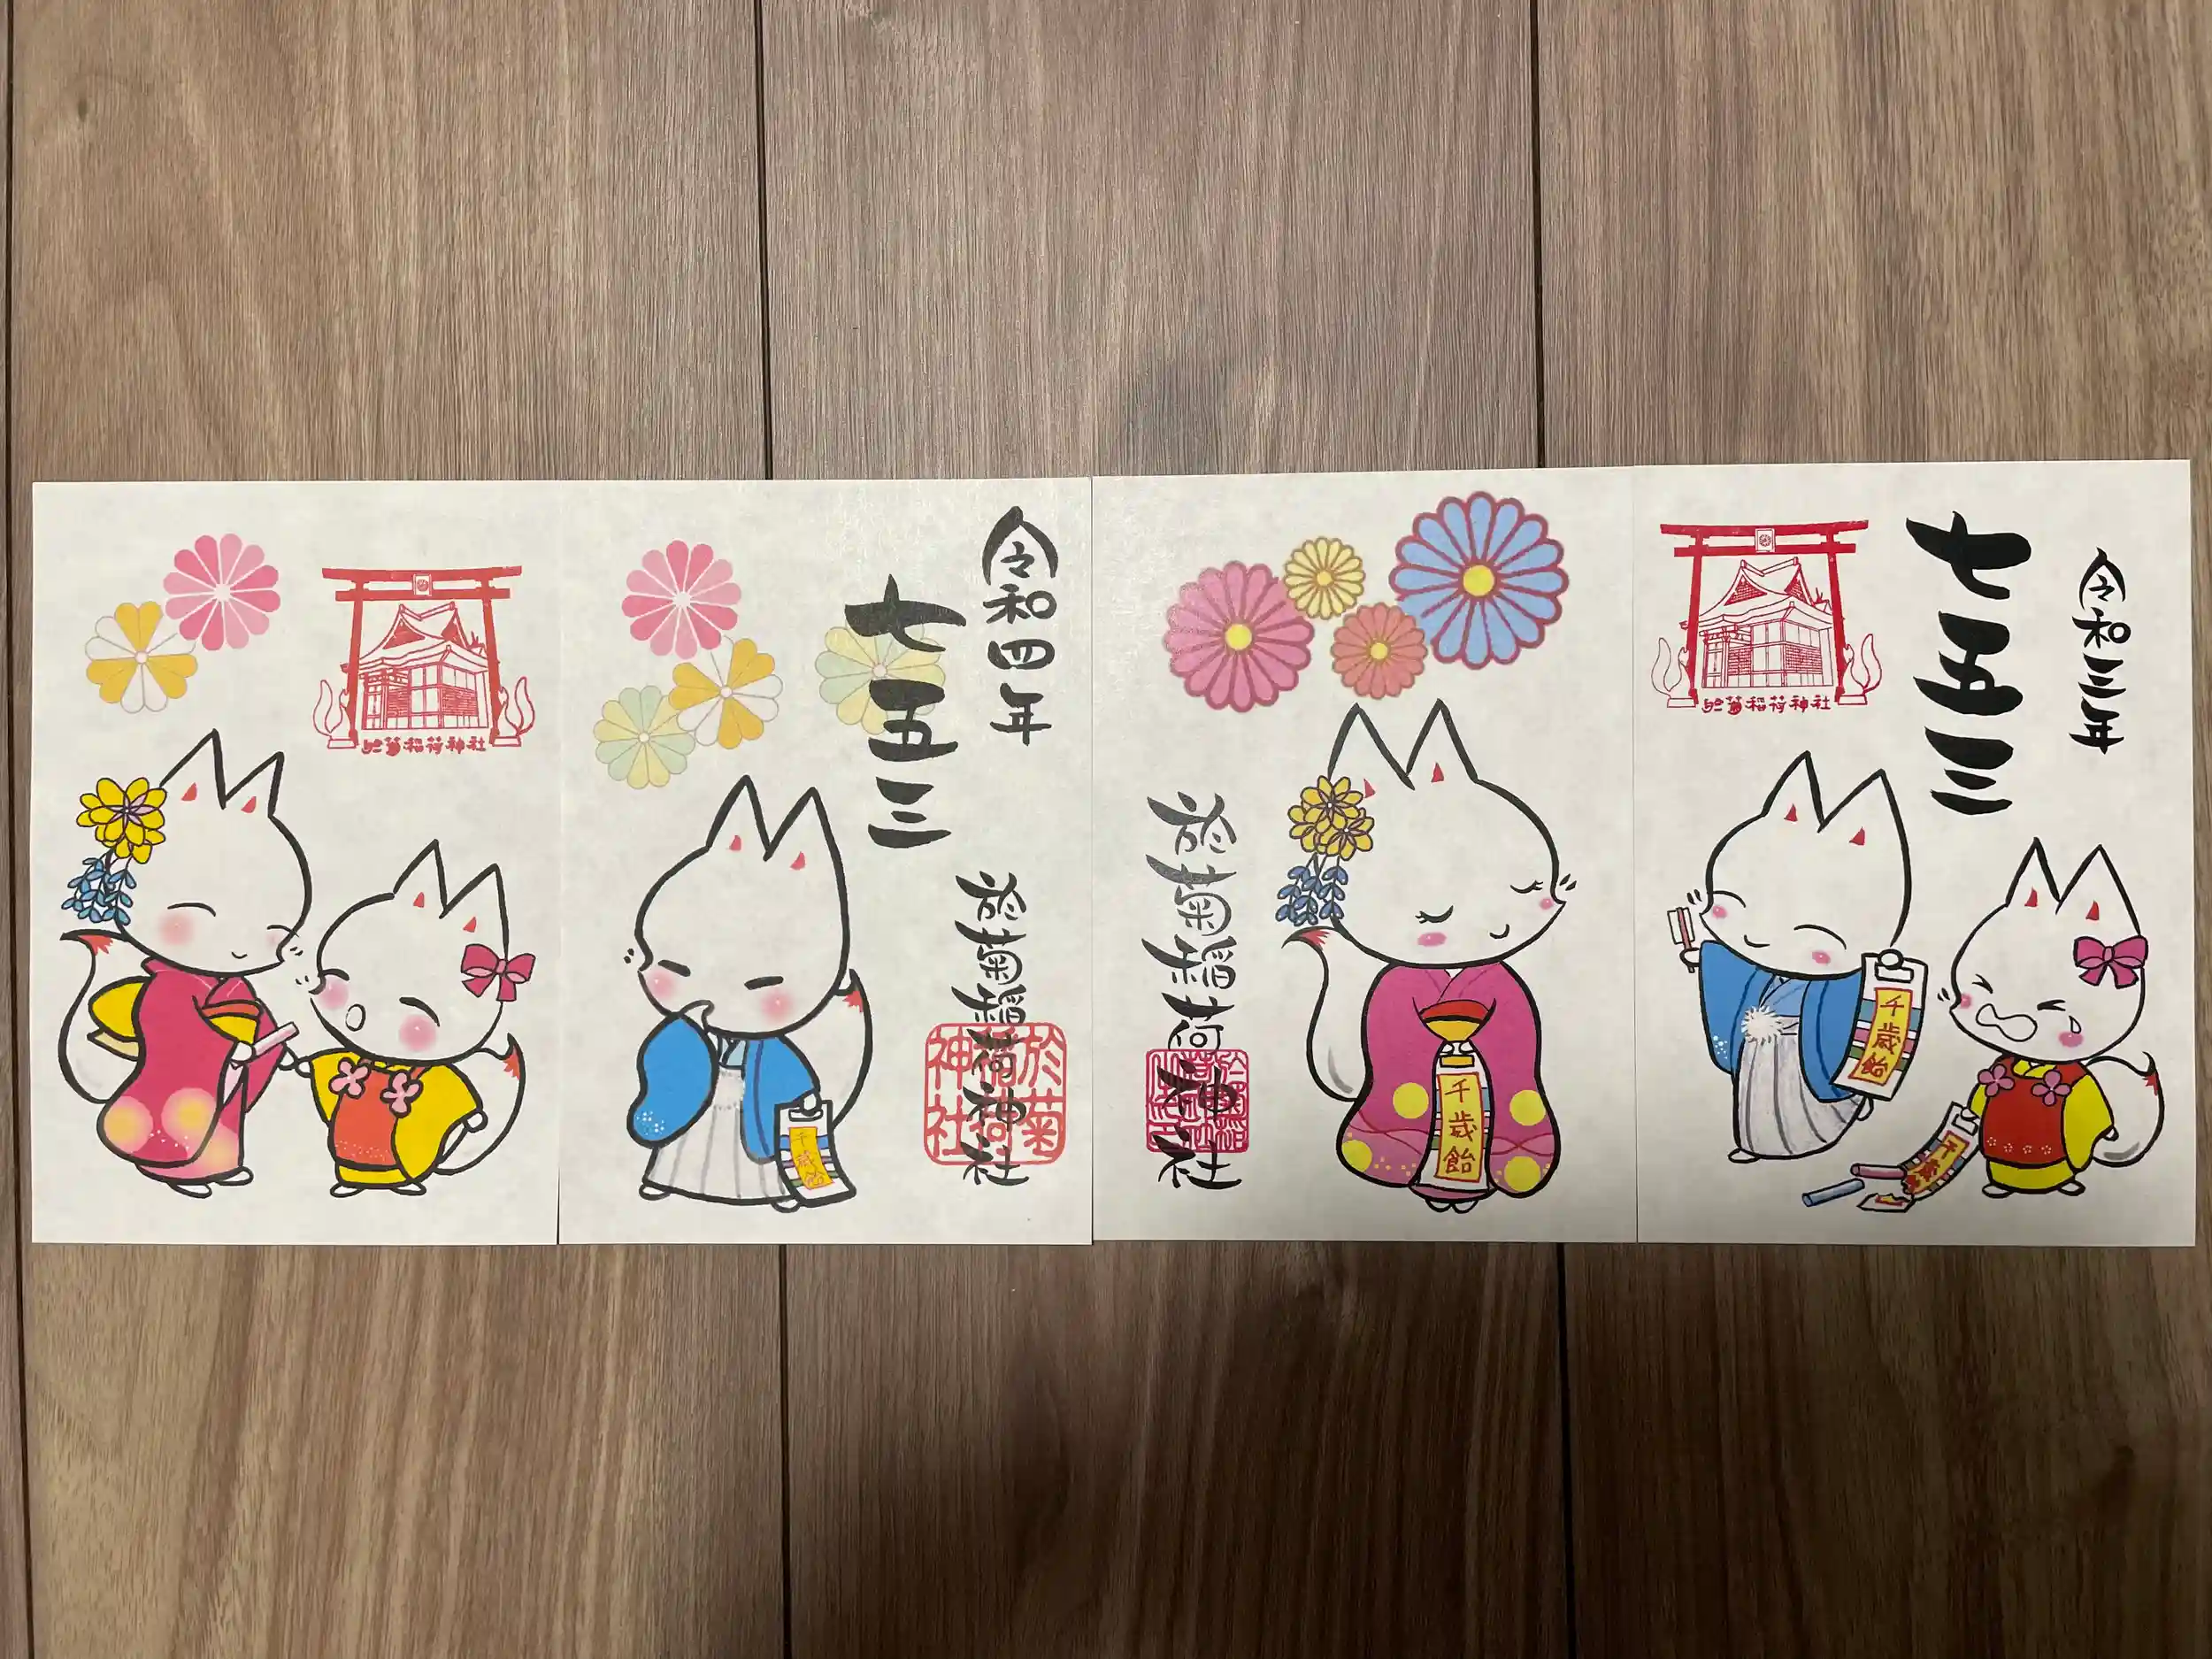 於菊稲荷神社
令和四年
七五三
於菊稲荷神社
於菊稲荷神社
千歳飴
於菊稲荷神社
於菊稲荷
神社
千歳飴
令和三年
七五三
於菊稲荷神社
千歳飴
千歳